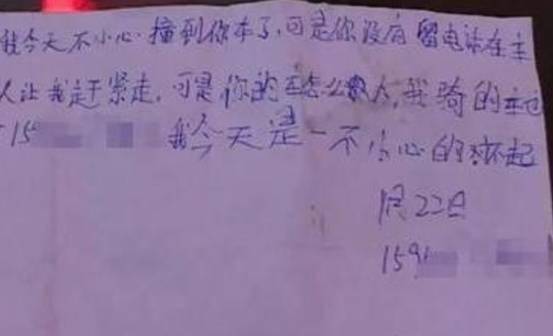 我今天不小心撞到你车了,可是你没有留电话在车
人让我赶紧走,可是你的车怎么办,我骑的车也
15
我今天是一不小心的对不起
1月22日
159